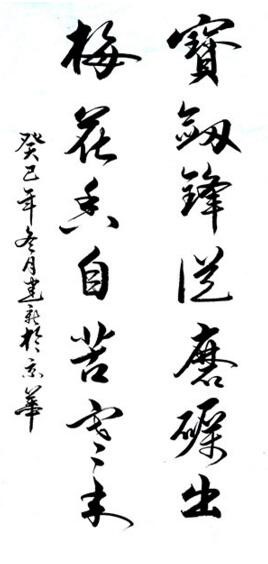 寶劔鋒從磨礪出
梅花香自苦寒来
癸巳年冬月建新於京華